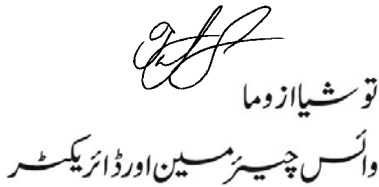 توشیا ازوما
وائس چیئرمین اور ڈائریکٹر